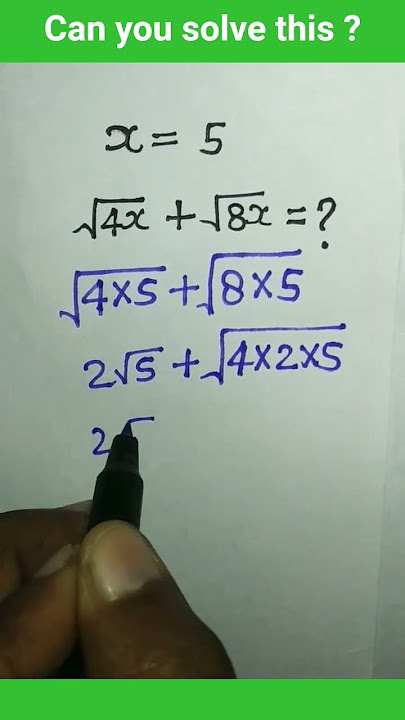 Can you solve this ?
x = 5
√4x + √8x = ?
√4×5 + √8×5
2√5 + √4×2×5
2√